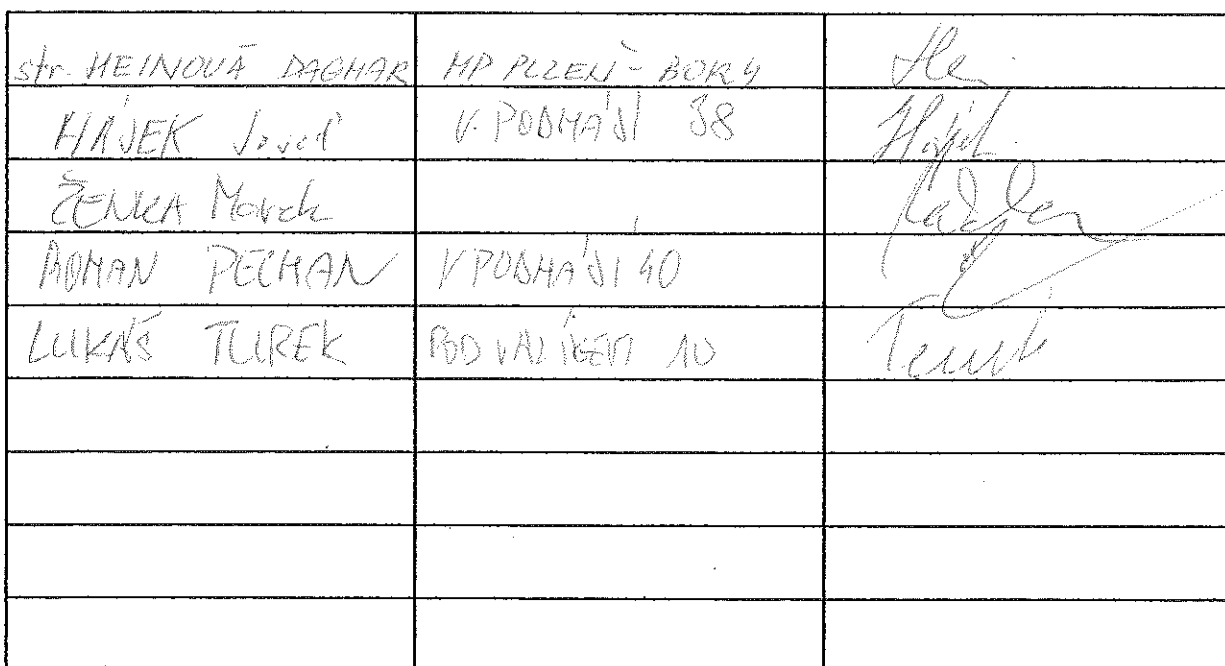 str. HEINOVÁ DAGMAR MP PLZEŇ - BORY
HÁJEK Josef V. PODHÁJÍ 38 Hájek
ŽENKA Marek
ROMAN PECHAN V PODHÁJÍ 40
LUKÁŠ TUREK POD VALÍKEM 10 Turek